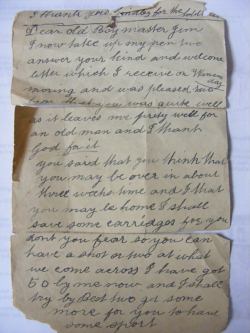 I thank you
for the
Dear old Boy master Jim
I now take up my pen two
answer your kind and welcome
letter which I receive on
morning and was pleased
hear that you was quite well
as it leaves me pirety well for
an old man and I thank
God for it
you said that you think that
you may be over in about
three weeks time and I that
you may be home I shall
save some carridges for you
dont you fear so you can
have a shot or two at what
we come across I have got
50 by me now and I shall
try by Best two get some
more for you to have
some sport